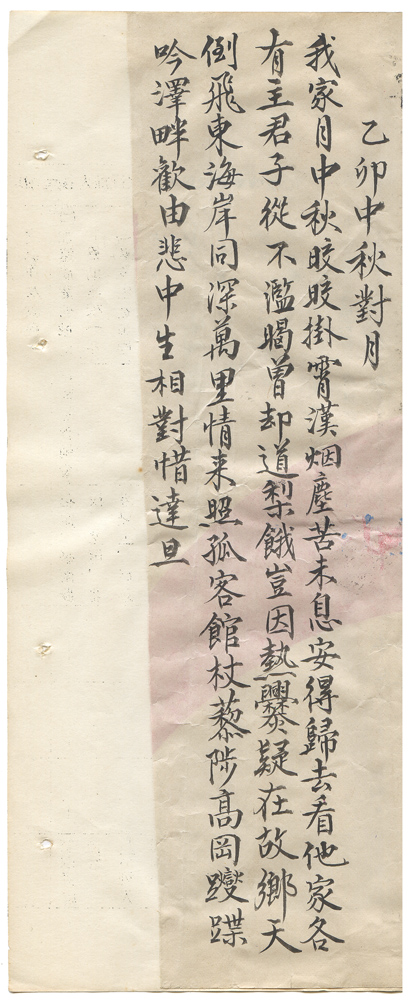 乙卯中秋對月
我家月中秋皎皎掛霄漢烟塵苦未息安得歸去看他家各
有主君子從不濫暍曾却道梨餓豈因熱爨疑在故鄉天
倒飛東海岸同深萬里情来照孤客館杖藜陟高岡躞蹀
吟澤畔歡由悲中生相對惜達旦